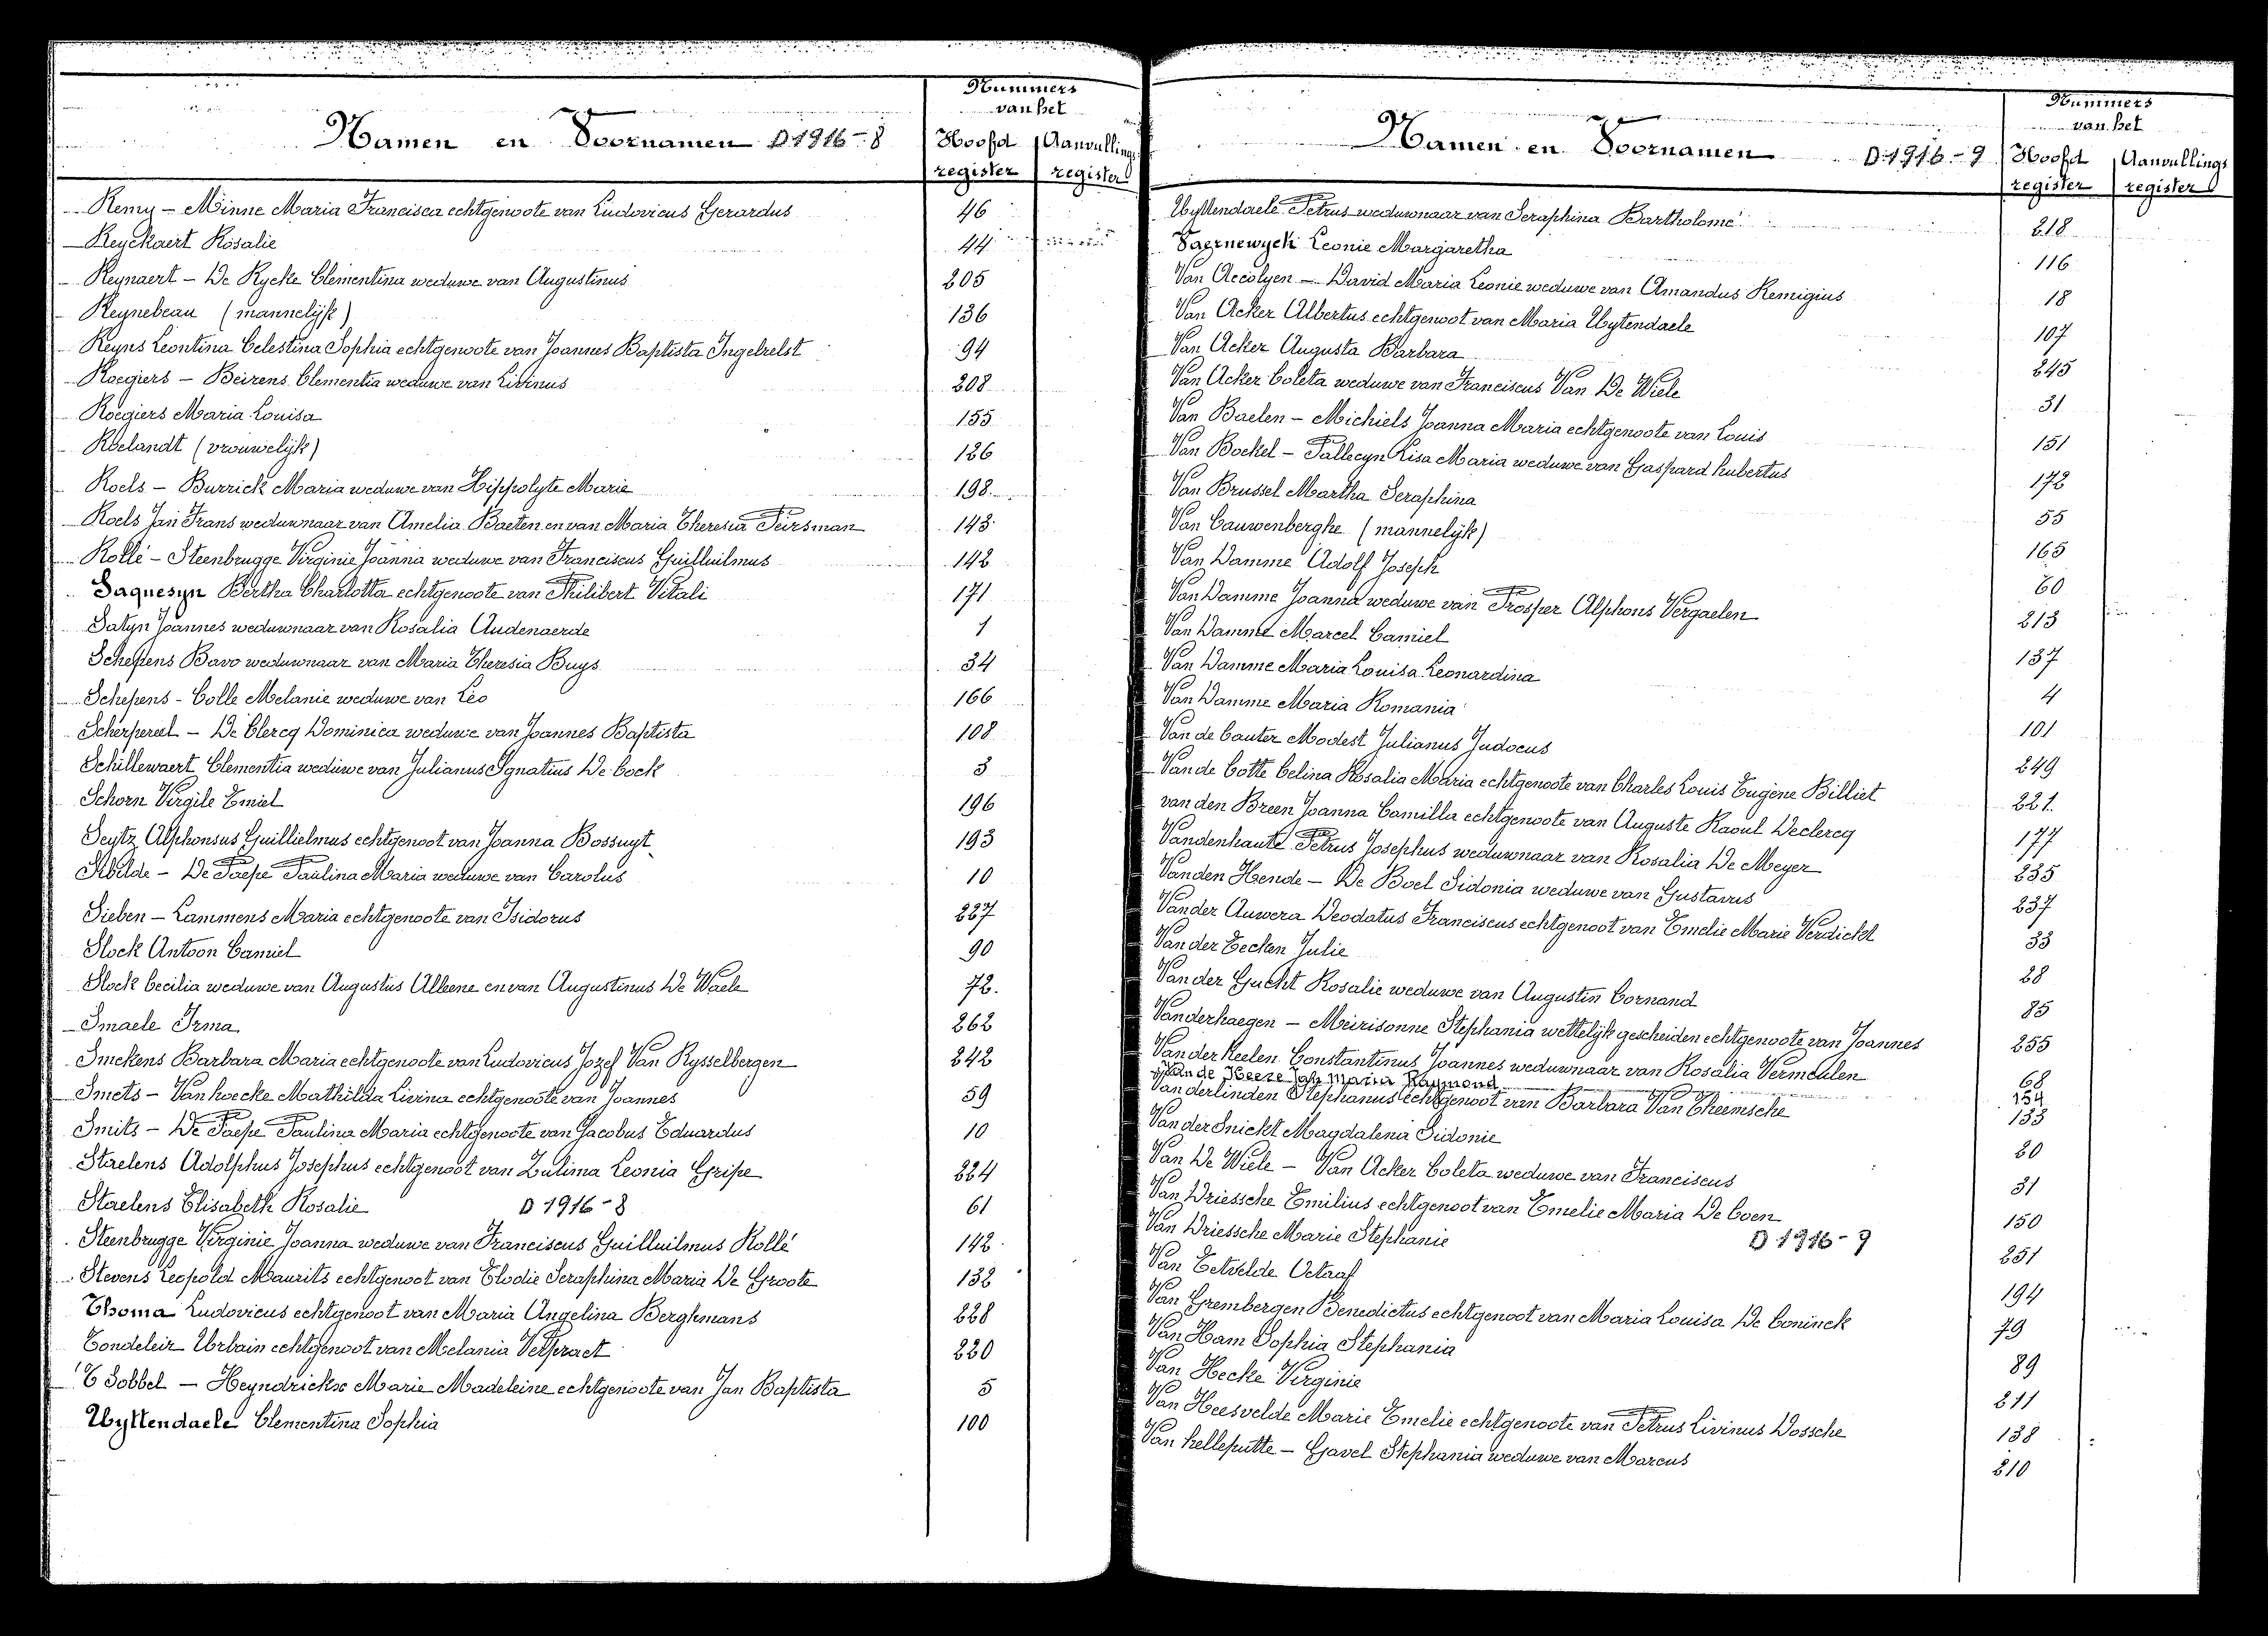 Nummers
van het
Namen en Voornamen D 1916 - 8 Hoofd Aanvullings
register register
Remy - Minne Maria Francisca echtgenoote van Ludovicus Gerardus 46
Reyckaert Rosalie 44
Reynaert - De Rycke Clementina weduwe van Augustinus 205
Reynebeau (mannelijk) 136
Reyns Leontina Celestina Sophia echtgenoote van Joannes Baptista Ingelrelst 94
Roegiers - Beirens Clementia weduwe van Livinus 208
Roegiers Maria Louisa 155
Roelandt (vrouwelijk) 126
Roels - Burrick Maria weduwe van Hippolyte Marie 198
Roels Jan Frans weduwnaar van Amelia Baeten en van Maria Theresia Peirsman 143
Rollé - Steenbrugge Virginie Joanna weduwe van Franciscus Guilluilmus 142
Saquesyn Bertha Charlotta echtgenoote van Philibert Vitali 171
Satyn Joannes weduwnaar van Rosalia Audenaerde 1
Schepens Bavo weduwnaar van Maria Theresia Buys 34
Schepens - Colle Melanie weduwe van Leo 166
Scherpereel - De Clercq Dominica weduwe van Joannes Baptista 108
Schillewaert Clementia weduwe van Julianus Ignatius De Cock 3
Schorn Virgile Emiel 196
Seytz Alphonsus Guillielmus echtgenoot van Joanna Bossuyt 193
Sbilde - De Paepe Paulina Maria weduwe van Carolus 10
Sieben - Lammens Maria echtgenoote van Isidorus 227
Slock Antoon Camiel 90
Slock Cecilia weduwe van Augustus Alleene en van Augustinus De Waele 72.
Smaele Irma 262
Smekens Barbara Maria echtgenoote van Ludovicus Jozef Van Rysselbergen 242
Smets - Van hoecke Mathilda Livina echtgenoote van Joannes 59
Smits - De Paepe Paulina Maria echtgenoote van Jacobus Eduardus 10
Staelens Adolphus Josephus echtgenoot van Zulima Leonia Gripe 224
Staelens Elisabeth Rosalie D 1916 - 8 61
Steenbrugge Virginie Joanna weduwe van Franciscus Guilluilmus Rollé 142
Stevens Leopold Maurits echtgenoot van Elodie Seraphina Maria De Groote 132
Thoma Ludovicus echtgenoot van Maria Angelina Berghmans 228
Tondeleir Urbain echtgenoot van Melania Velpraet 220
'T Sobbel - Heyndrickx Marie Madeleine echtgenoote van Jan Baptista 5
Uyttendaele Clementina Sophia 100
Nummers
van het
Namen en Voornamen D 1916 - 9 Hoofd Aanvullings
register register
Uyttendaele Petrus weduwnaar van Seraphina Bartholomé 218
Vaernewyck Leonie Margaretha 116
Van Accolyen - David Maria Leonie weduwe van Amandus Remigius 18
Van Acker Albertus echtgenoot van Maria Uytendaele 107
Van Acker Augusta Barbara 245
Van Acker Coleta weduwe van Franciscus Van De Wiele 31
Van Baelen - Michiels Joanna Maria echtgenoote van Louis 151
Van Bockel - Pallecyn Lisa Maria weduwe van Gaspard hubertus 172
Van Brussel Martha Seraphina 55
Van Cauwenberghe (mannelijk) 165
Van Damme Adolf Joseph 60
Van Damme Joanna weduwe van Prosper Alphons Vergaelen 213
Van Damme Marcel Camiel 137
Van Damme Maria Louisa Leonardina 4
Van Damme Maria Romania 101
Van de Cauter Modest Julianus Judocus 249
Van de Cotte Celina Rosalia Maria echtgenoote van Charles Louis Eugène Billiet 221.
van den Breen Joanna Camilla echtgenoote van Auguste Raoul Declercq 177
Vandenhaute Petrus Josephus weduwnaar van Rosalia De Meyer 235
Van den Hende - De Boel Sidonia weduwe van Gustavus 237
Van der Auwera Deodatus Franciscus echtgenoot van Emelie Marie Verdickt 33
Van der Eecken Julie 28
Van der Gucht Rosalie weduwe van Augustin Cornand 85
Vanderhaegen - Meirisonne Stephania wettelijk gescheiden echtgenoote van Joannes 255
Van der Keelen Constantinus Joannes weduwnaar van Rosalia Vermeulen 68
Van de Heere Jah Maria Raymond 154
Van derlinden Stephanus echtgenoot van Barbara Van Theemsche 133
Van der Snickt Magdalena Sidonie 20
Van De Wiele - Van Acker Coleta weduwe van Franciscus 31
Van Driessche Emilius echtgenoot van Emelie Maria De Coen 150
Van Driessche Marie Stephanie D 1916 - 9 251
Van Eetvelde Octaaf 194
Van Grembergen Benedictus echtgenoot van Maria Louisa De Coninck 79
Van Ham Sophia Stephania 89
Van Hecke Virginie 211
Van Heesvelde Marie Emelie echtgenoote van Petrus Livinus Dossche 138
Van helleputte - Gavel Stephania weduwe van Marcus 210